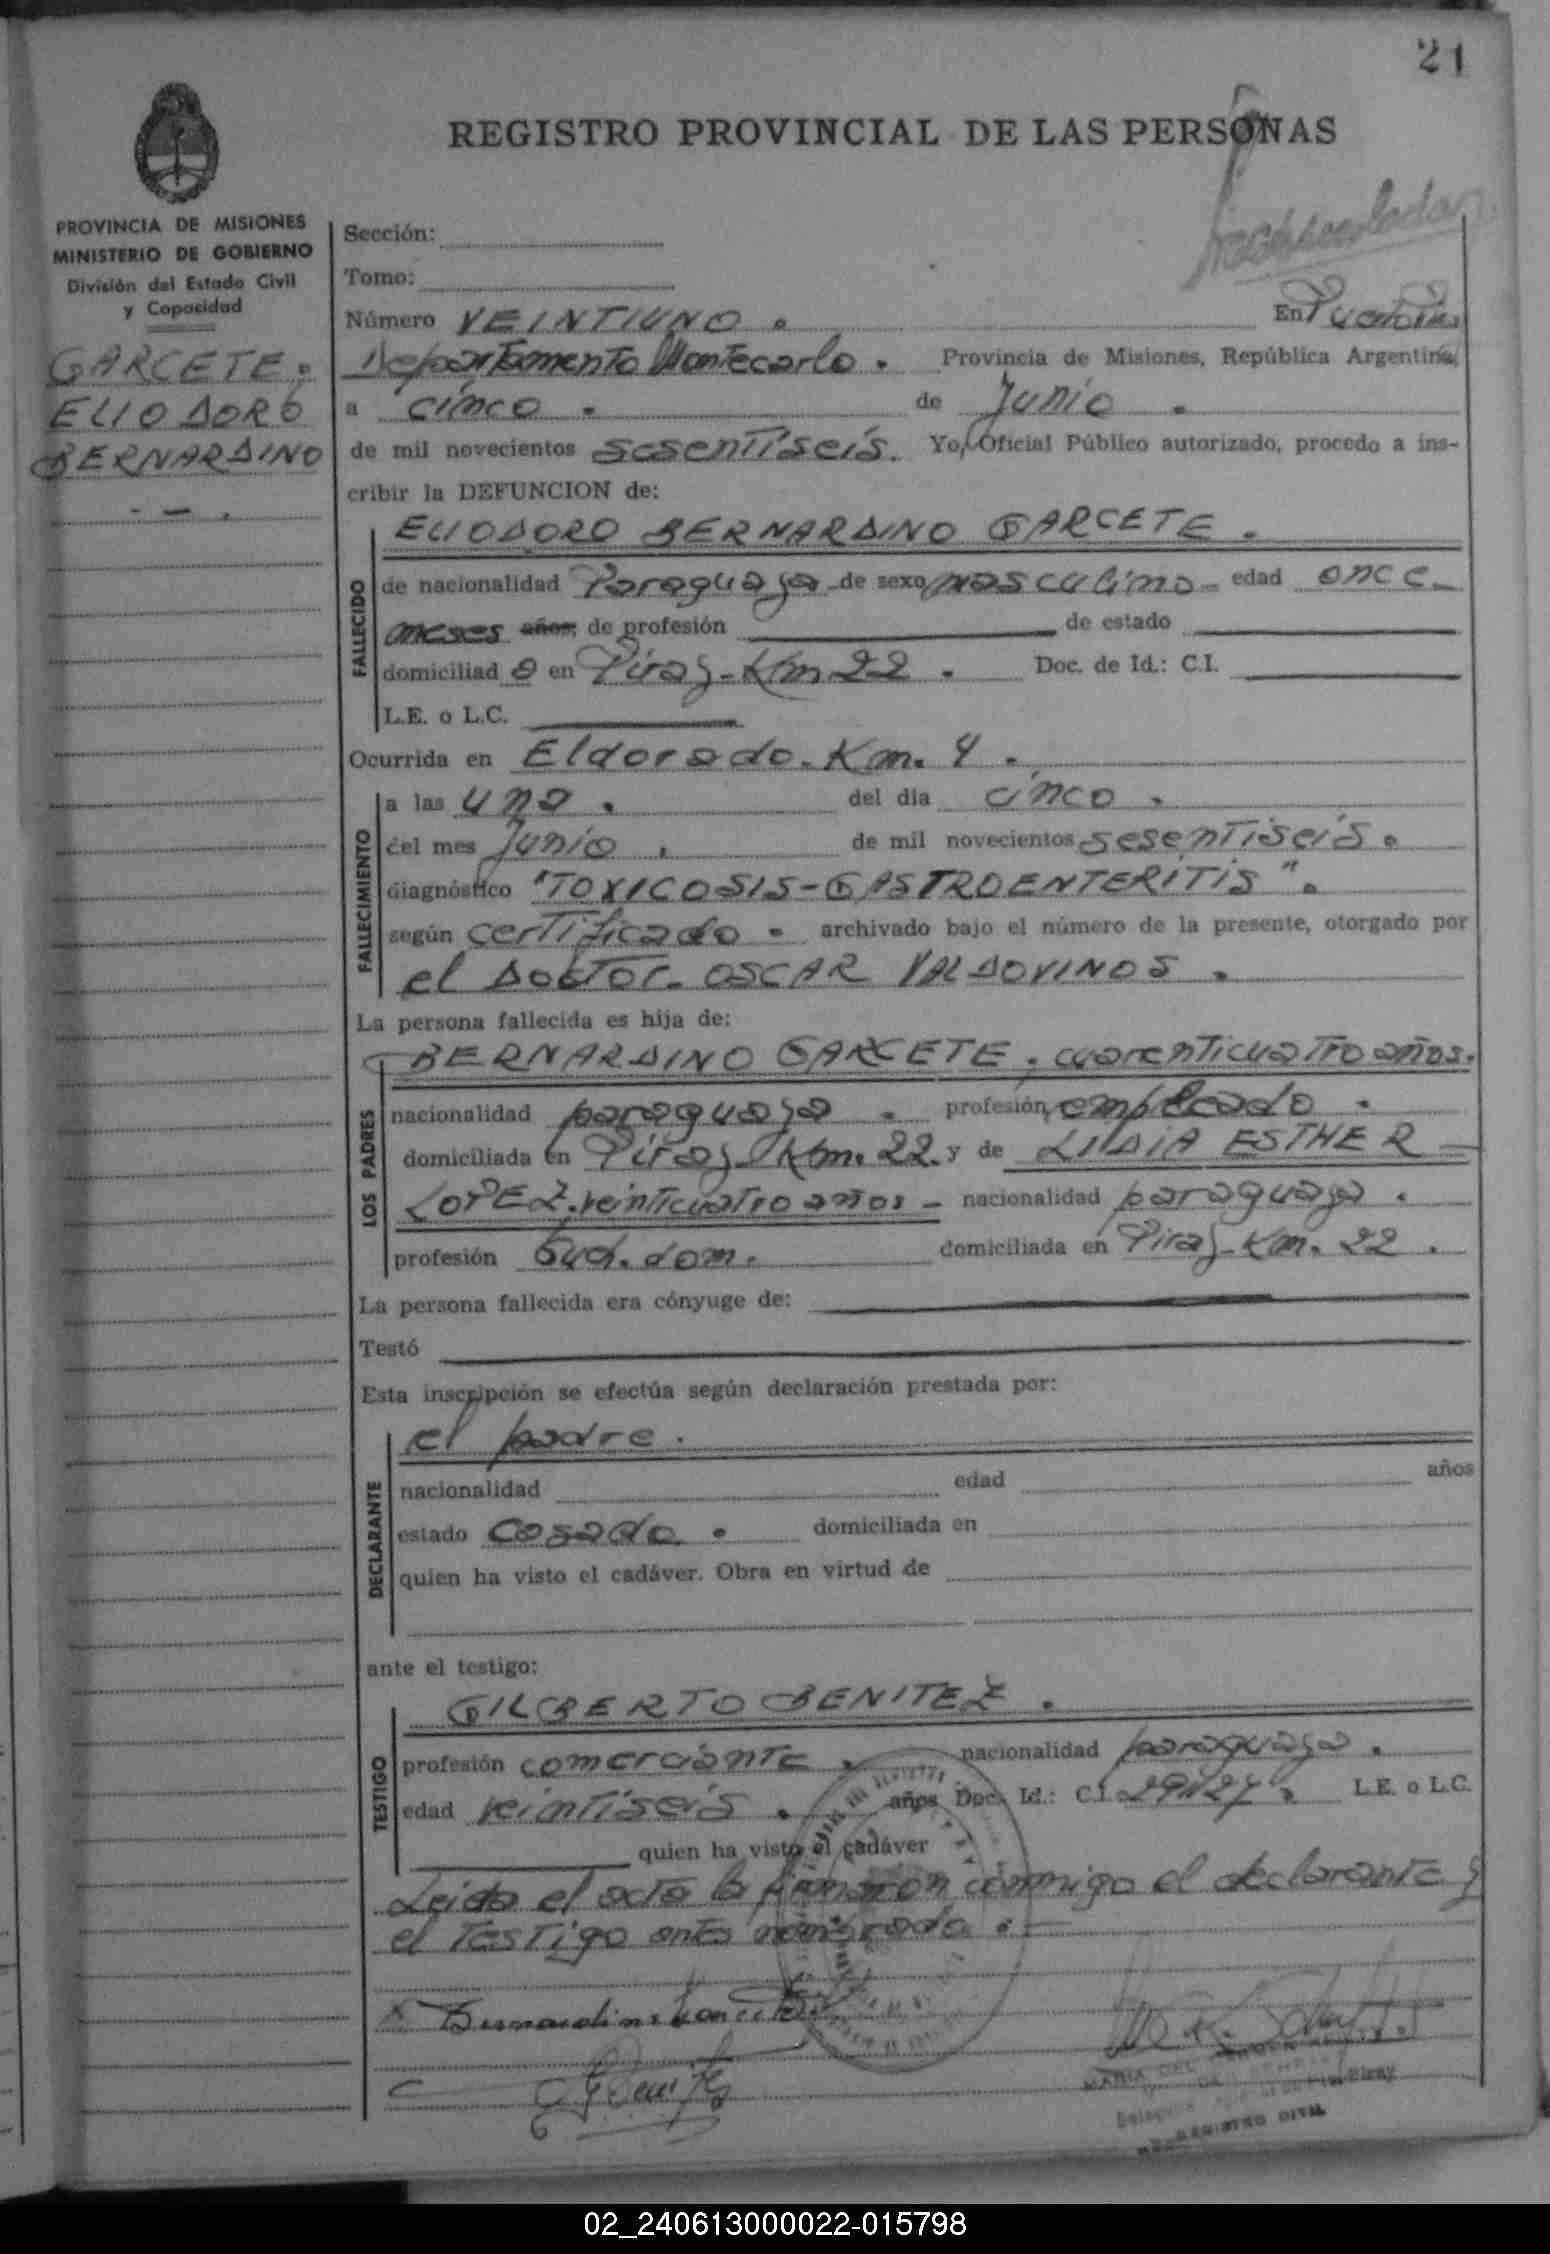 21
REGISTRO PROVINCIAL DE LAS PERSONAS
PROVINCIA DE MISIONES
MINISTERIO DE GOBIERNO
División del Estado Civil
y Capacidad
GARCETE.
ELIODORO
BERNARDINO
- — .
Sección:
Tomo:
Número VEINTIUNO. En
Departamento Montecarlo. Provincia de Misiones, República Argentina,
a cinco. de Junio.
de mil novecientos sesentiseis. Yo, Oficial Público autorizado, procedo a ins-
cribir la DEFUNCION de:
ELIODORO BERNARDINO GARCETE.
FALLECIDO
de nacionalidad Paraguaya de sexo masculino - edad once
meses años, de profesión de estado
domiciliado en Piray-Km 22. Doc. de Id.: C.I.
L.E. o L.C.
Ocurrida en Eldorado. Km. 4.
FALLECIMIENTO
a las una. del dia cinco.
del mes Junio. de mil novecientos sesentiseis.
diagnóstico "TOXICOSIS-GASTROENTERITIS".
según certificado. archivado bajo el número de la presente, otorgado por
el Doctor. OSCAR VALDOVINOS.
La persona fallecida es hija de:
BERNARDINO GARCETE, cuarenticuatro años.
LOS PADRES
nacionalidad paraguaya. profesión, empleado.
domiciliada en Piray-Km. 22. y de LIDIA ESTHER -
LOPEZ. veinticuatro años - nacionalidad paraguaya.
profesión Qud. dom. domiciliada en Piray-Km. 22.
La persona fallecida era cónyuge de:
Testó
Esta inscripción se efectúa según declaración prestada por:
el padre.
DECLARANTE
nacionalidad edad años
estado Casado. domiciliada en
quien ha visto el cadáver. Obra en virtud de
ante el testigo:
GILBERTO BENITEZ.
TESTIGO
profesión comerciante. nacionalidad paraguaya.
edad veintiseis. años Doc. Id.: C.I. L.E. o L.C.
quien ha visto el cadáver
Leida el acta la firmaron conmigo el declarante y
el testigo antes nombrado.-
MARIA DEL CARMEN
Piray
REGISTRO CIVIL
02_240613000022-015798